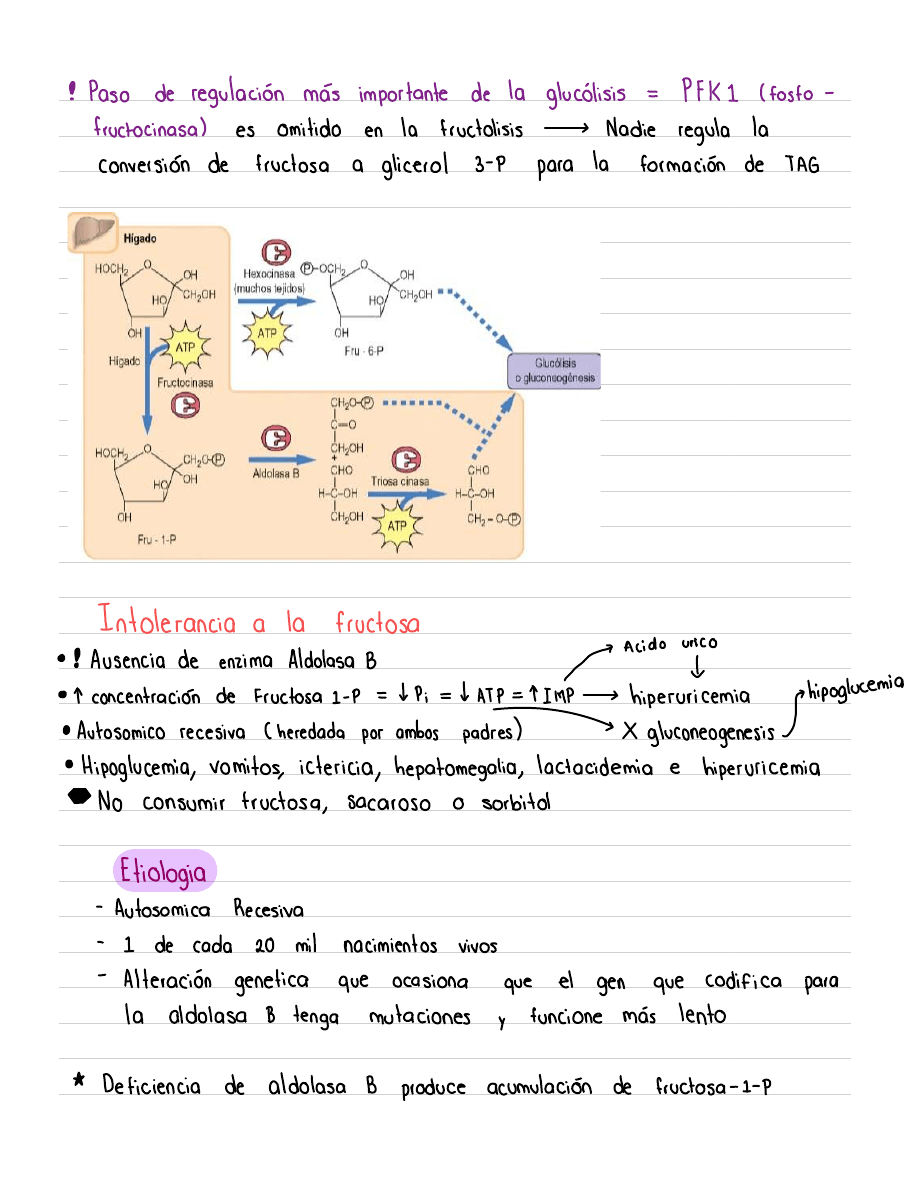 ! Paso de regulación más importante de la glucólisis = PFK1 (fosfo-
fructocinasa) es omitido en la fructolisis → Nadie regula la
conversión de fructosa a glicerol 3-P para la formación de TAG
Hígado
HOCH₂ O OH
HO CH₂OH
OH
Hexocinasa
(muchos tejidos)
ATP
P-OCH₂ O OH
HO CH₂OH
OH
Fru - 6-P
Glucólisis
o gluconeogénesis
Hígado
ATP
Fructocinasa
HOCH₂ O CH₂O-P
HO OH
OH
Fru - 1-P
Aldolasa B
CH₂O-P
C=O
CH₂OH
+
CHO
H-C-OH
CH₂OH
Triosa cinasa
ATP
CHO
H-C-OH
CH₂-O-P
Intolerancia a la fructosa
• ! Ausencia de enzima Aldolasa B
Acido urico
• ↑ concentración de Fructosa 1-P = ↓ Pi = ↓ ATP = ↑ IMP → hiperuricemia
hipoglucemia
• Autosomico recesiva (heredada por ambos padres)
X gluconeogenesis
• Hipoglucemia, vomitos, ictericia, hepatomegalia, lactacidemia e hiperuricemia
No consumir fructosa, sacaroso o sorbitol
Etiologia
- Autosomica Recesiva
- 1 de cada 20 mil nacimientos vivos
- Alteración genetica que ocasiona que el gen que codifica para
la aldolasa B tenga mutaciones y funcione más lento
* Deficiencia de aldolasa B produce acumulación de fructosa-1-P